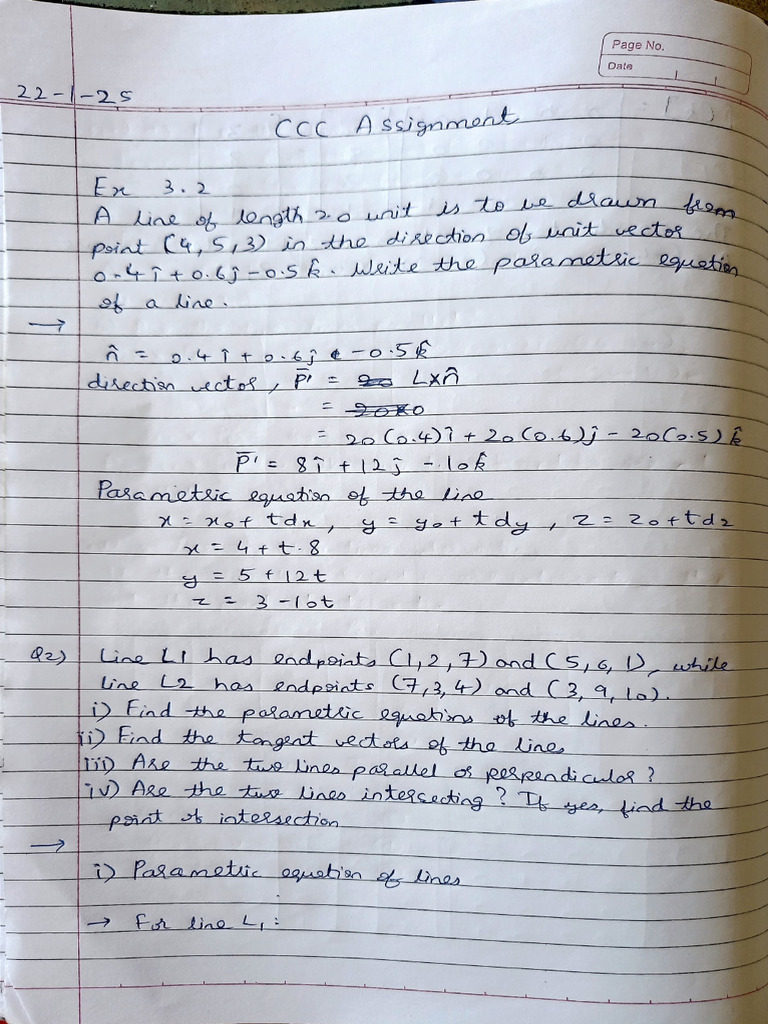 Page No.
Date
22-1-25
CCC Assignment
Ex 3.2
A line of length 20 unit is to be drawn from
point (4, 5, 3) in the direction of unit vector
0.4î + 0.6ĵ - 0.5k̂. Write the parametric equation
of a line.
→
n̂ = 0.4î + 0.6ĵ - 0.5k̂
direction vector, P̄' = L×n̂
=
= 20(0.4)î + 20(0.6)ĵ - 20(0.5)k̂
P̄' = 8î + 12ĵ - 10k̂
Parametric equation of the line
x = x₀ + tdx, y = y₀ + tdy, z = z₀ + tdz
x = 4 + t.8
y = 5 + 12t
z = 3 - 10t
Q2) Line L1 has endpoints (1, 2, 7) and (5, 6, 1), while
line L2 has endpoints (7, 3, 4) and (3, 9, 10).
i) Find the parametric equations of the lines.
ii) Find the tangent vectors of the lines
iii) Are the two lines parallel or perpendicular?
iv) Are the two lines intersecting? If yes, find the
point of intersection
→
i) Parametric equation of lines
→ For line L₁: